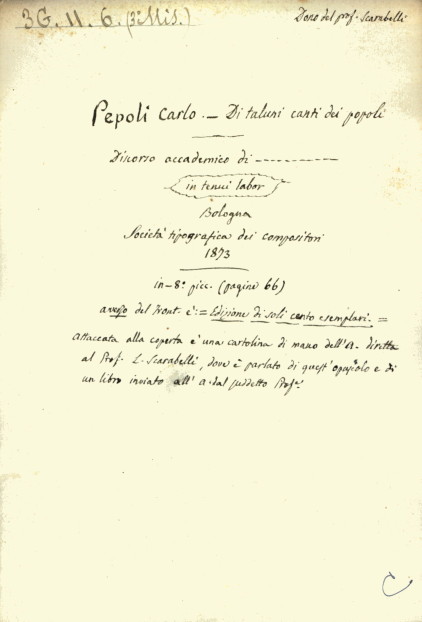 3G. 11. 6. (3: Mis.)
Dono del prof. Scarabelli
Pepoli Carlo. — Di taluni canti dei popoli
Discorso accademico di ----------
in tenui labor
Bologna
Società tipografica dei compositori
1873
in-8.° picc. (pagine 66)
averso del Front. è: = Edizione di soli cento esemplari. =
Attaccata alla coperta è una cartolina di mano dell'A. diretta
al Prof. L. Scarabelli, dove è parlato di quest'opuscolo e di
un libro inviato all'A. dal suddetto Prof.r
C